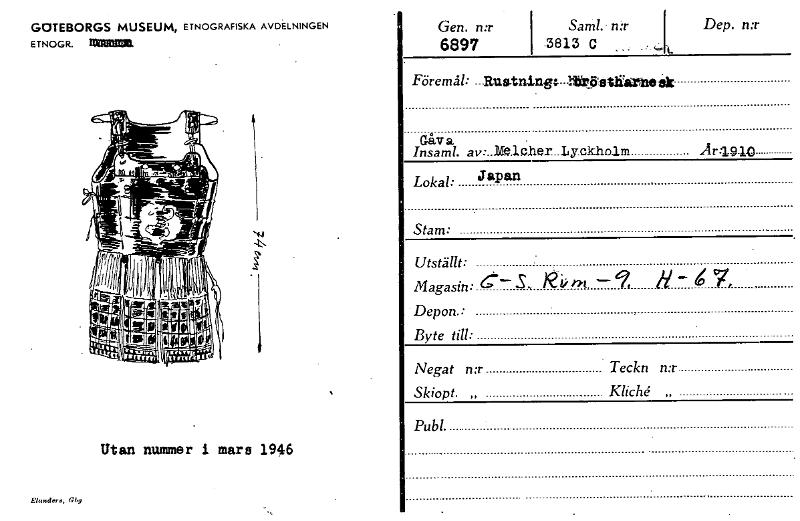 GÖTEBORGS MUSEUM, ETNOGRAFISKA AVDELNINGEN
ETNOGR.
74 cm.
Utan nummer i mars 1946
Elanders, Gbg
Gen. n:r
6897
Saml. n:r
3813 C
Dep. n:r
Föremål: Rustning: bröstharnesk
Gåva
Insaml. av: Melcher Lyckholm År: 1910
Lokal: Japan
Stam:
Utställt:
Magasin: G-S. Rum-9. H-67.
Depon.:
Byte till:
Negat n:r Teckn n:r
Skiopt. „ Kliché „
Publ.